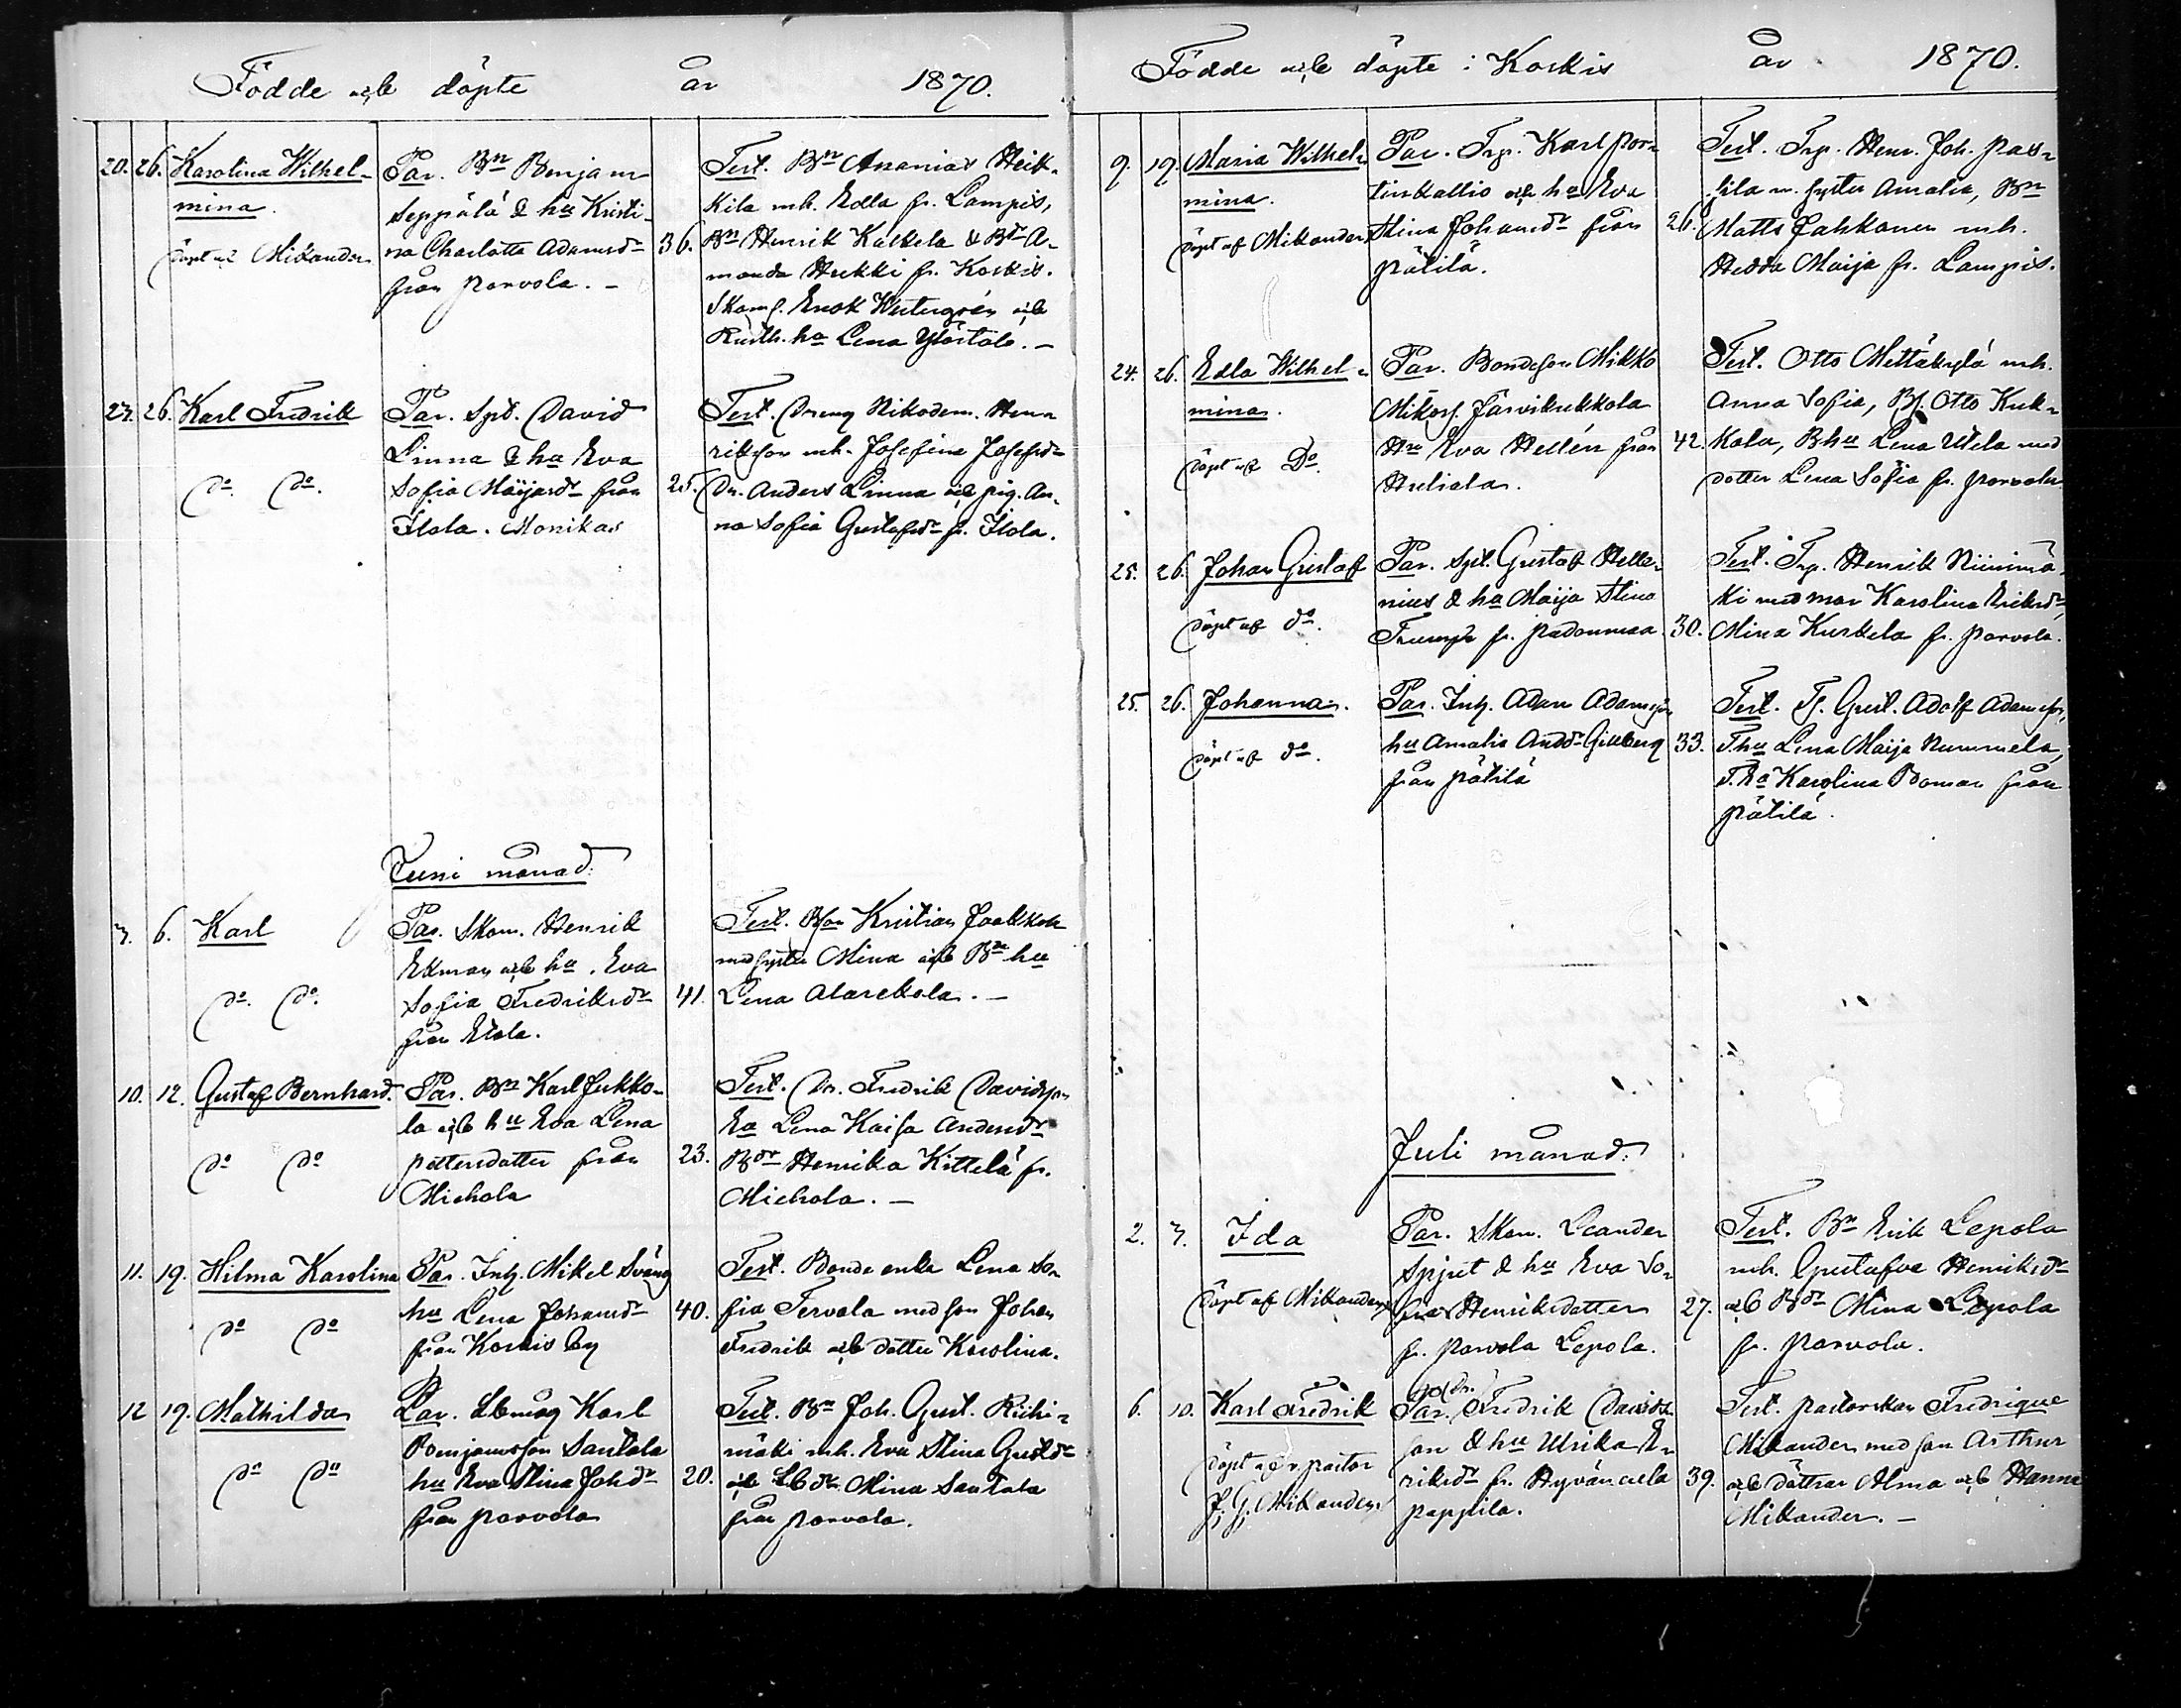 Födde och döpte år 1870.
20. 26. Karolina Wilhel-
mina.
döpt af Mikander
Par. Bn Benjam
Seppälä & hu Kristi-
na Charlotta Adamsdr
från Porvola. –
36.
Test. Bn Ananias Heik-
kilä mh. Edla fr. Lampis,
Bn Henrik Kaikela & Bdr A-
manda Hukki fr. Koskis.
Skom. Enok Westergrén och
Rusth. ha Lena Ylöstalo. –
23. 26. Karl Fredrik
do. do.
Par. Spt. David
Linna & hu Eva
Sofia Maijasdr från
Ilola. Monikas
25.
Test. Dreng Nikodem. Hen-
rikson mh. Josefina Josefsdr
Dr. Anders Linna och pig. An-
na Sofia Gustafsdr fr. Ilola.
Juni månad:
3. 6. Karl
do. do.
Par. Skom. Henrik
Ekman och hu. Eva
Sofia Fredriksdr
från Etola.
41.
Test. Bson Kristian Jaakkola
med syster Mina och Bn hu
Lena Alarekola. –
10. 12. Gustaf Bernhard.
do do
Par. Bn Karl Jukko-
la och hu Eva Lena
Pettersdotter från
Michola
23.
Test. Dr. Fredrik Davidson
ha Lena Kaisa Andersdr
Bdr Henrika Kittelä fr.
Michola. –
11. 19. Hilma Karolina
do do
Par. Inh. Mikel Sväng
hu Lena Johansdr
från Koskis by
40.
Test. Bonde enka Lena So-
fia Tervola med son Johan
Fredrik och dotter Karolina.
12 19. Mathilda
do do
Par. Lbmåg Karl
Benjamsson Santala
hu Eva Stina Johdr
från Porvola
20.
Test. Bn Joh. Gust. Riihi-
mäki mh. Eva Stina Gustdr
och Lb dr Mina Santala
från Porvola.
Födde och döpte i Koskis år 1870.
9. 19. Maria Wilhel-
mina.
döpt af Mikander
Par. Trp. Karl Por-
tinkallio och hu Eva
Stina Johansdr från
Pätilä.
26.
Test. Trp. Henr. Joh. Pas-
sila m. syster Amalia, Bn
Matts Jahkonen mh.
Hedda Maija fr. Lampis.
24. 26. Edla Wilhel-
mina.
döpt af Do.
Par. Bondeson Mikko
Mikass. Järvikukkola
Hu Eva Hellén från
Huliala.
42.
Test. Otto Mettäkylä mh.
Anna Sofia, Bs. Otto Kuk-
kola, B hu Lena Utela med
dotter Lena Sofia fr. Porvola
25. 26. Johan Gustaf
döpt af do.
Par. Spt. Gustaf Helle-
nius & hu Maija Stina
Trump fr. Padonmaa
30.
Test. Trp. Henrik Niinimä-
ki med mor Karolina Eriksdr
Mina Kurkela fr. Porvola.
25. 26. Johanna.
döpt af do.
Par. Inh. Adam Adamsson
hu Amalia Andsdr Gillberg
från Pätilä
33.
Test. Ts. Gust. Adolf Adamsson,
T hu Lena Maija Nummela,
T. ha Karolina Boman från
Pätilä.
Juli månad:
2. 3. Ida
döpt af Mikander
Par. Skom. Leander
Spjut & hu Eva So-
fia Henriksdotter
fr. Porvola Lepola.
27.
Test. Bn Erik Lepola
mh. Gustafva Henriksdr
och Bdr Mina Lepola
fr. Porvola.
6. 10. Karl Fredrik
döpt af v. pastor
J. G. Mikander
Par. Fredrik Davids-
son & hu Ulrika E-
riksdr fr. Hyvänoela
Pappila.
39.
Test. Pastorskan Fredrique
Mikander med son Arthur
och döttrar Alma och Hanna
Mikander. –